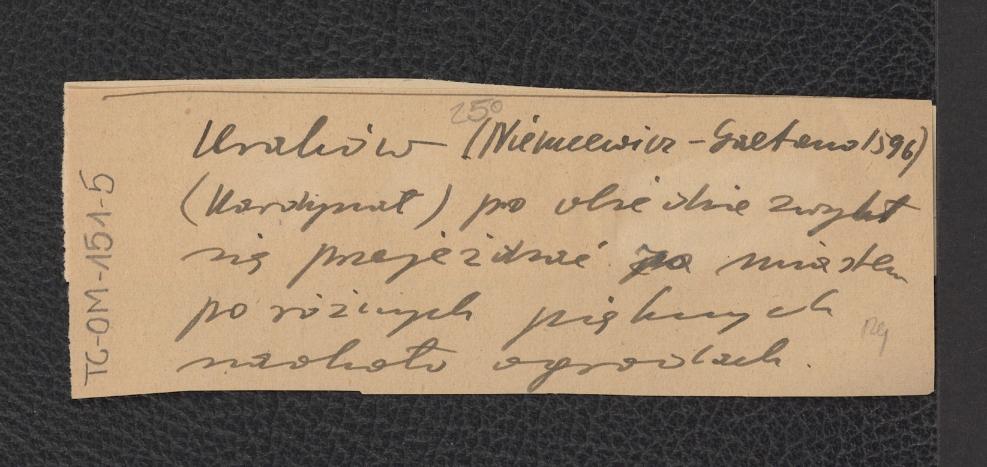 250
Kraków (Niemcewicz - Gaetano 1596)
(Kardynał) po obiedzie zwykł
się przejeżdżać za miastem
po różnych pięknych
naokoło ogrodach.
TG-OM-151-5